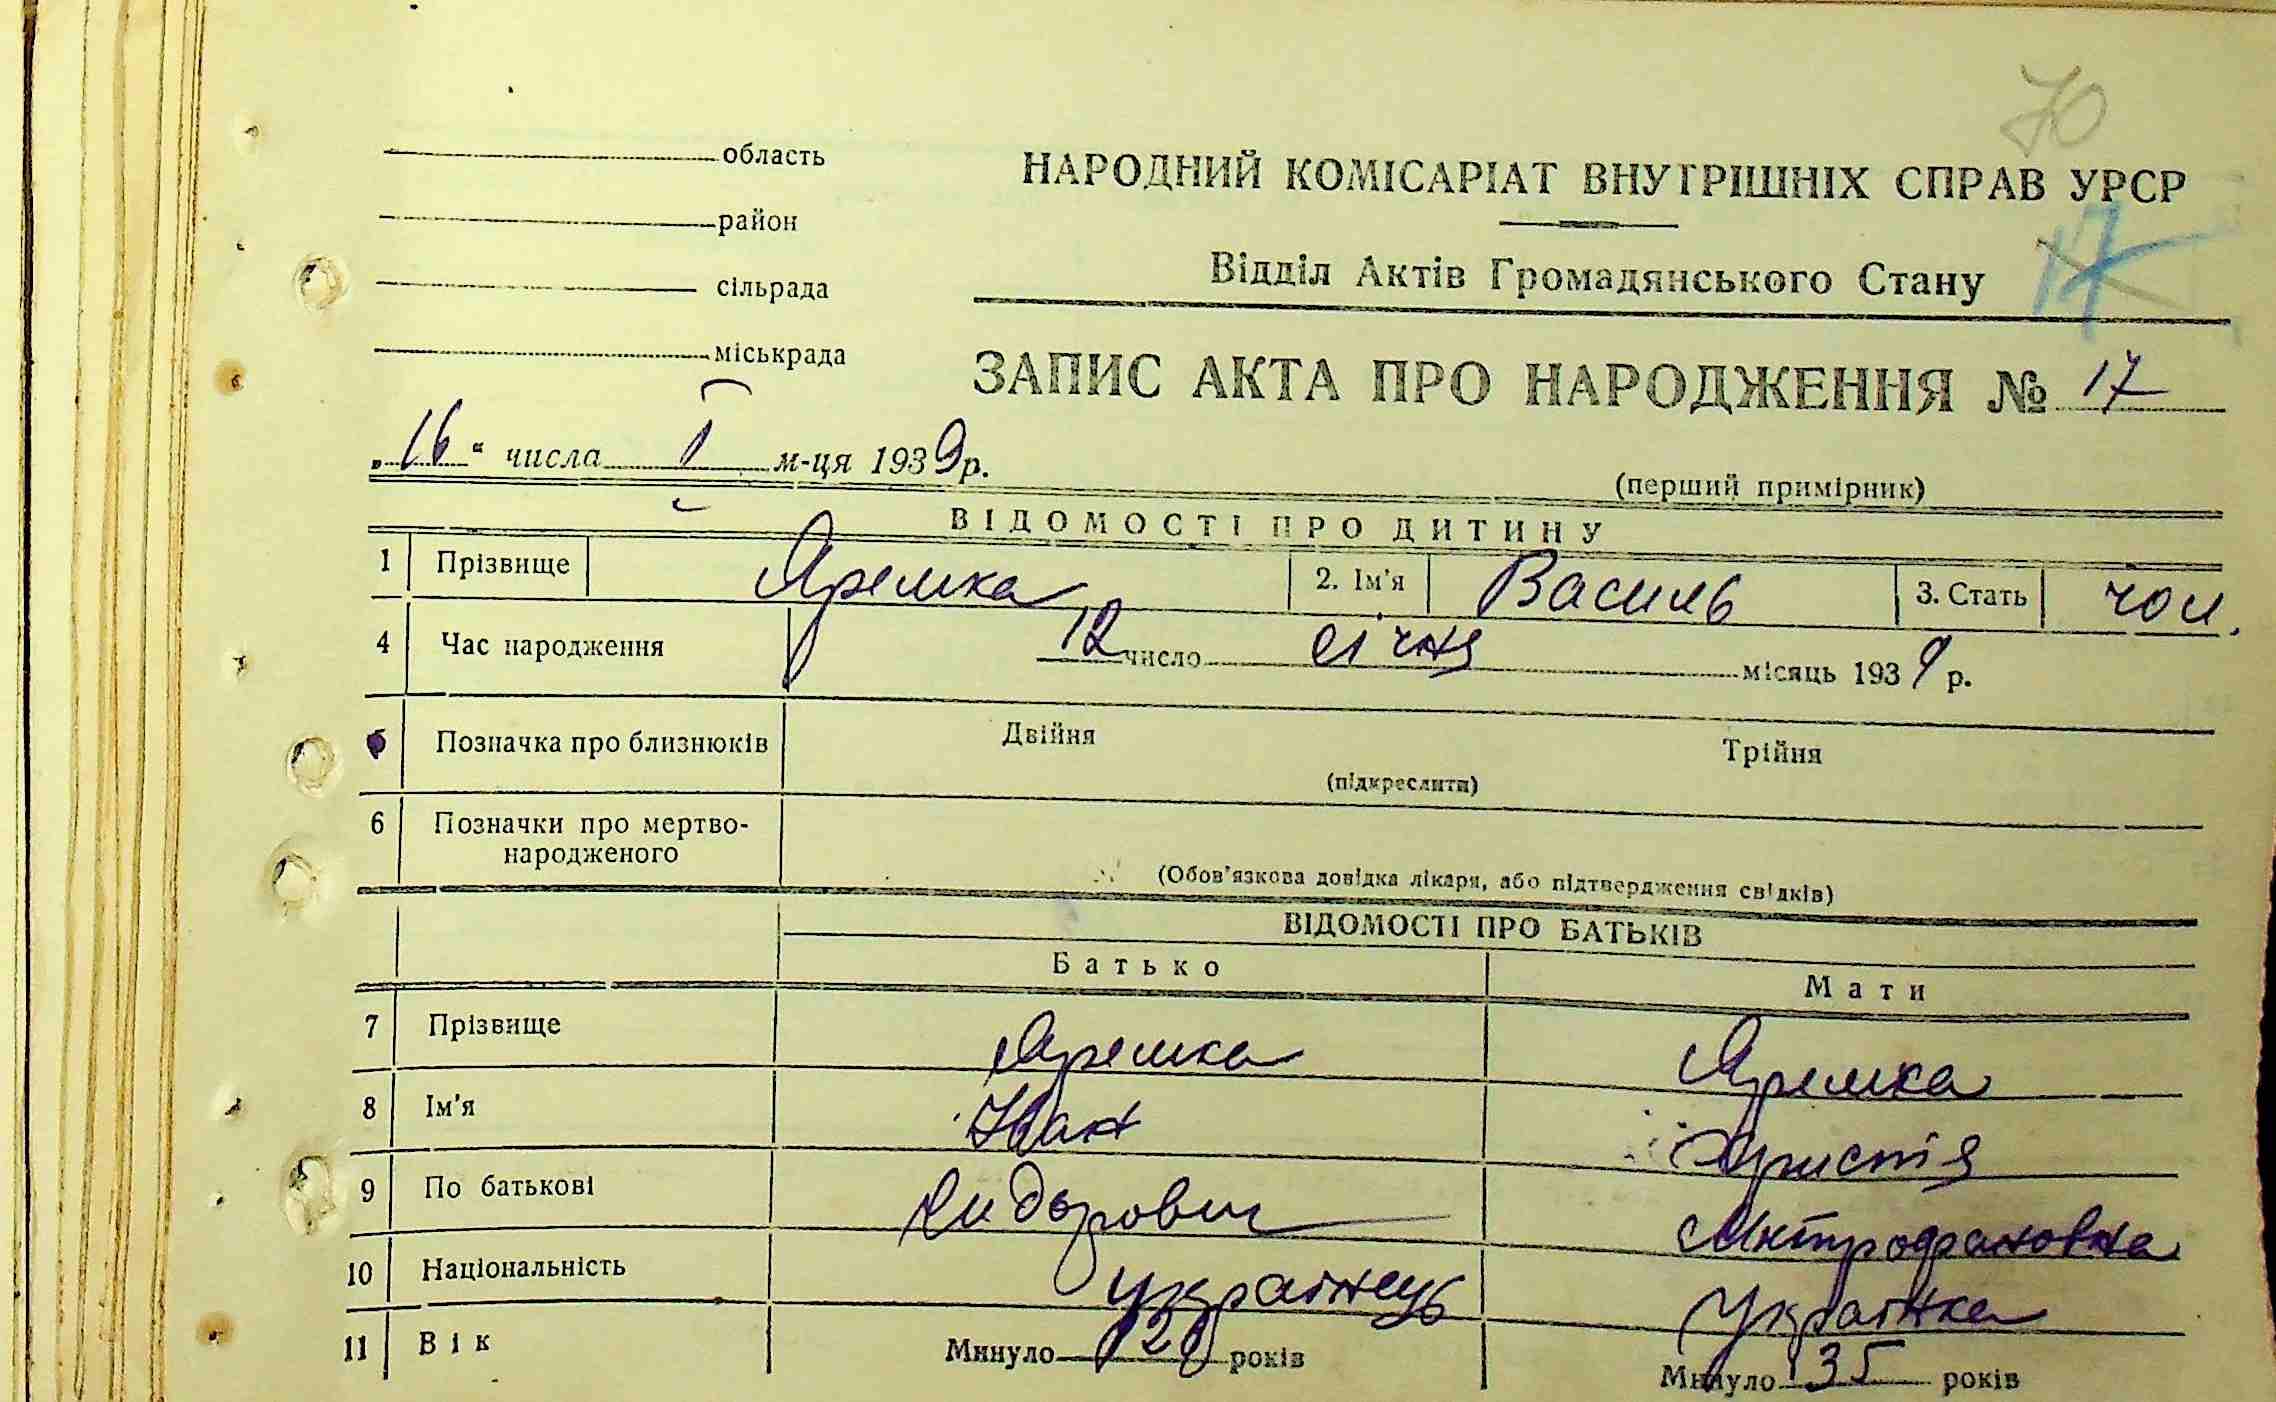 70
область
НАРОДНИЙ КОМІСАРІАТ ВНУТРІШНІХ СПРАВ УРСР
район
17
сільрада
Відділ Актів Громадянського Стану
міськрада
ЗАПИС АКТА ПРО НАРОДЖЕННЯ № 17
„16“ числа I м-ця 1939 р.
(перший примірник)
ВІДОМОСТІ ПРО ДИТИНУ
1 Прізвище Яремка 2. Ім'я Василь 3. Стать чол.
4 Час народження 12 число січня місяць 1939 р.
5 Позначка про близнюків Двійня Трійня
(підкреслити)
6 Позначки про мертво-
народженого
(Обов'язкова довідка лікаря, або підтвердження свідків)
ВІДОМОСТІ ПРО БАТЬКІВ
Батько Мати
7 Прізвище Яремка Яремка
8 Ім'я Іван Христя
9 По батькові Сидорович Митрофановна
10 Національність українець Українка
11 Вік Минуло років Минуло 35 років